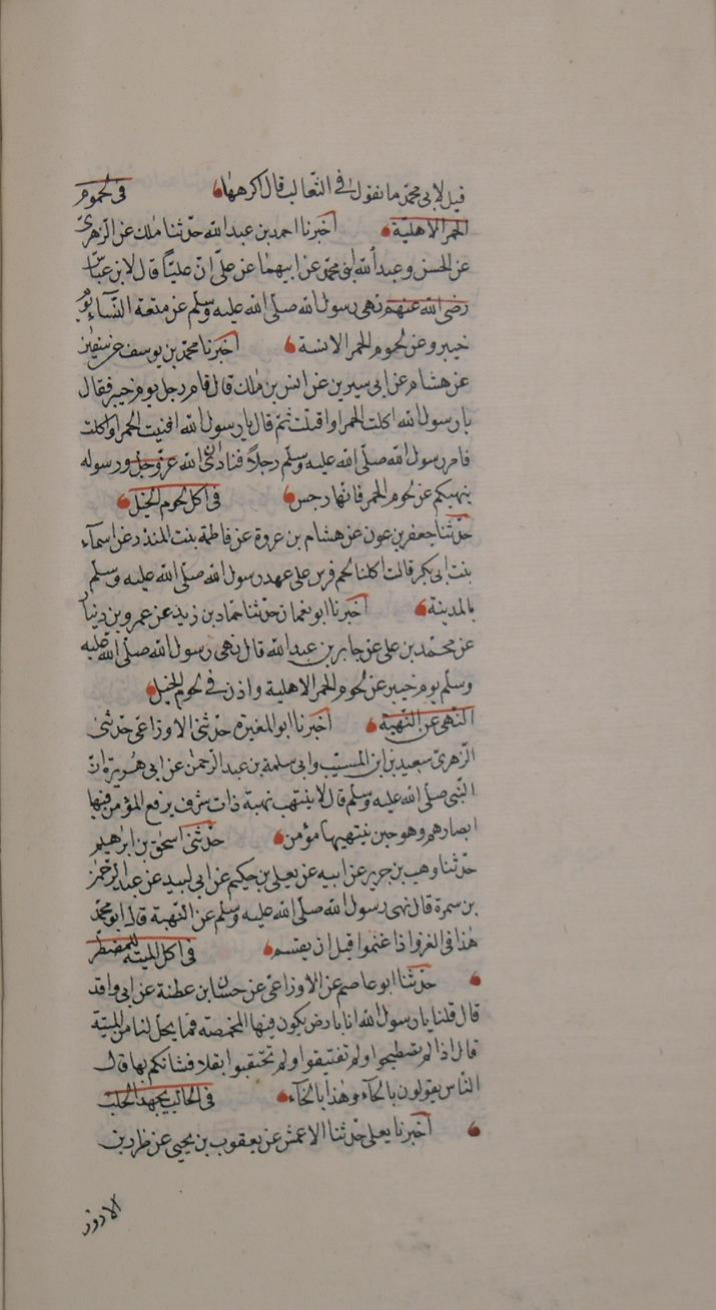 قيل لابى محمد ما نقول فى الثعالب قال اكرهها في لحوم
الحمر الاهلية اخبرنا احمد بن عبد الله حدثنا ملك عن الزهرى
عن الحسن وعبد الله ابنى محمد عن ابيهما عن على ان عليا قال لابن عباس
رضى الله عنهم نهى رسول الله صلى الله عليه وسلم عن متعة النساء يوم
خيبر وعن لحوم الحمر الانسة اخبرنا محمد بن يوسف عن سفين
عن هشام عن ابى سيرين عن انس بن ملك قال قام رجل يوم خيبر فقال
يا رسول الله اكلت الحمر او اقبلت ثم قال يا رسول الله افنيت الحمر او اكلت
فامر رسول الله صلى الله عليه وسلم رجلا فنادى ان الله عز وجل ورسوله
ينهيكم عن لحوم الحمر فانها رجس فى اكل لحوم الخيل
حدثنا جعفر بن عون عن هشام بن عروة عن فاطمة بنت المنذر عن اسمآء
بنت ابى بكر قالت اكلنا لحم فرس على عهد رسول الله صلى الله عليه وسلم
بالمدينة اخبرنا ابو نعمان حدثنا حماد بن زيد عن عمرو بن دينار
عن محمد بن على عن جابر بن عبد الله قال نهى رسول الله صلى الله عليه
وسلم يوم خيبر عن لحوم الحمر الاهلية واذن فى لحوم الخيل
النهى عن النهبة اخبرنا ابو المغيرة حدثنى الاوزاعى حدثنى
الزهرى سعيد بن ابن المسيب وابى سلمة بن عبد الرحمن عن ابى هريرة ان
النبى صلى الله عليه وسلم قال لا ينتهب نهبة ذات شرف يرفع المؤمن فيها
ابصارهم وهو حين ينتهبها مؤمن حدثنى اسحق بن ابرهيم
حدثنا وهيب بن جرير عن ابيه عن يعلى بن حكيم عن ابى لبيد عن عبد الرحمن
بن سمرة قال نهى رسول الله صلى الله عليه وسلم عن النهبة قال ابو محمد
هذا فى الغزو اذا غنموا قبل ان يقتسم فى اكل الميتة للمضطر
حدثنا ابو عاصم عن الاوزاعى عن حسان بن عطنة عن ابى واقد
قال قلنا يا رسول الله انا بارض يكون فيها المخمصة فما يحل لنا من الميتة
قال اذا لم تصطبحوا ولم تغتبقوا ولم تحتقبوا بقلا فشانكم بها قال
الناس يقولون بالحآء وهذا بالخآء فى الحالب يجهد الحلب
اخبرنا يعلى حدثنا الاعمش عن يعقوب بن يحيى عن ضرار بن
الازور